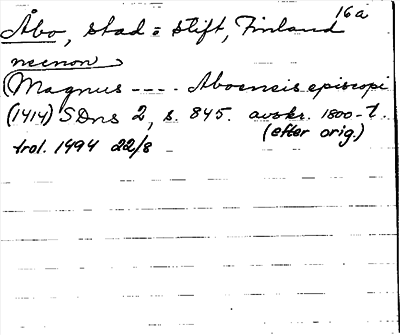 16a
Åbo, stad = stift, Finland
(Magnus ---- Aboensis episcopi
(1414) SDns 2, s. 845. avskr. 1800-t.
(efter orig.)
trol. 1494 22/8